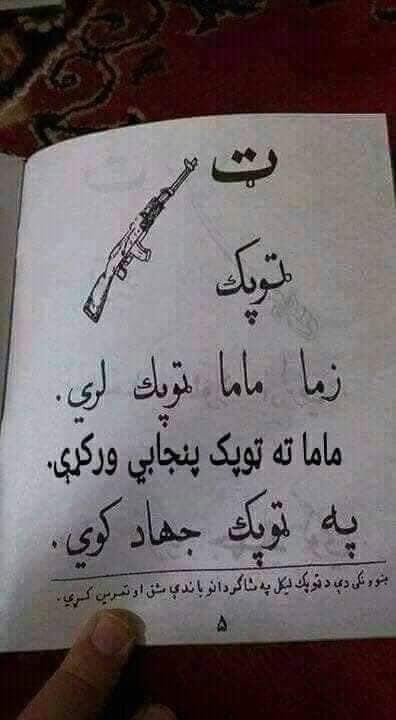 ټ
ټوپک
زما ماما ټوپک لري.
ماما ته ټوپک پنجابي ورکړې.
په ټوپک جهاد کوي.
ښوونکی دې د ټوپک ليکل په شاگردانو باندې مشق او تمرين کړي.
۵